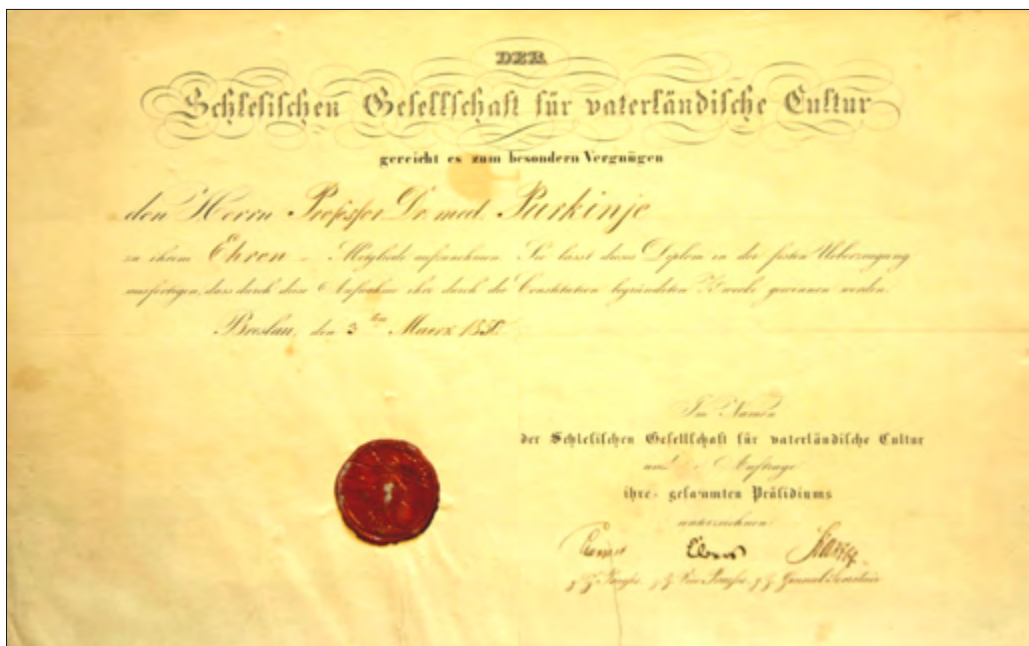 DER
Schlesischen Gesellschaft für vaterländische Cultur
gereicht es zum besondern Vergnügen
den Herrn Professor Dr. med. Purkinje
zu ihrem Ehren - Mitgliede aufzunehmen. Sie lässt dieses Diplom in der festen Ueberzeugung
ausfertigen, dass durch diese Aufnahme ihre durch die Constitution begründeten Zwecke gewinnen werden.
Breslau, den 3ten Maerz
Im Namen
der Schlesischen Gesellschaft für vaterländische Cultur
und Auftrage
ihres gesammten Präsidiums
unterzeichnen
z. Z. Praeses. z. Z. Vice Praeses. z. Z. General-Secretair